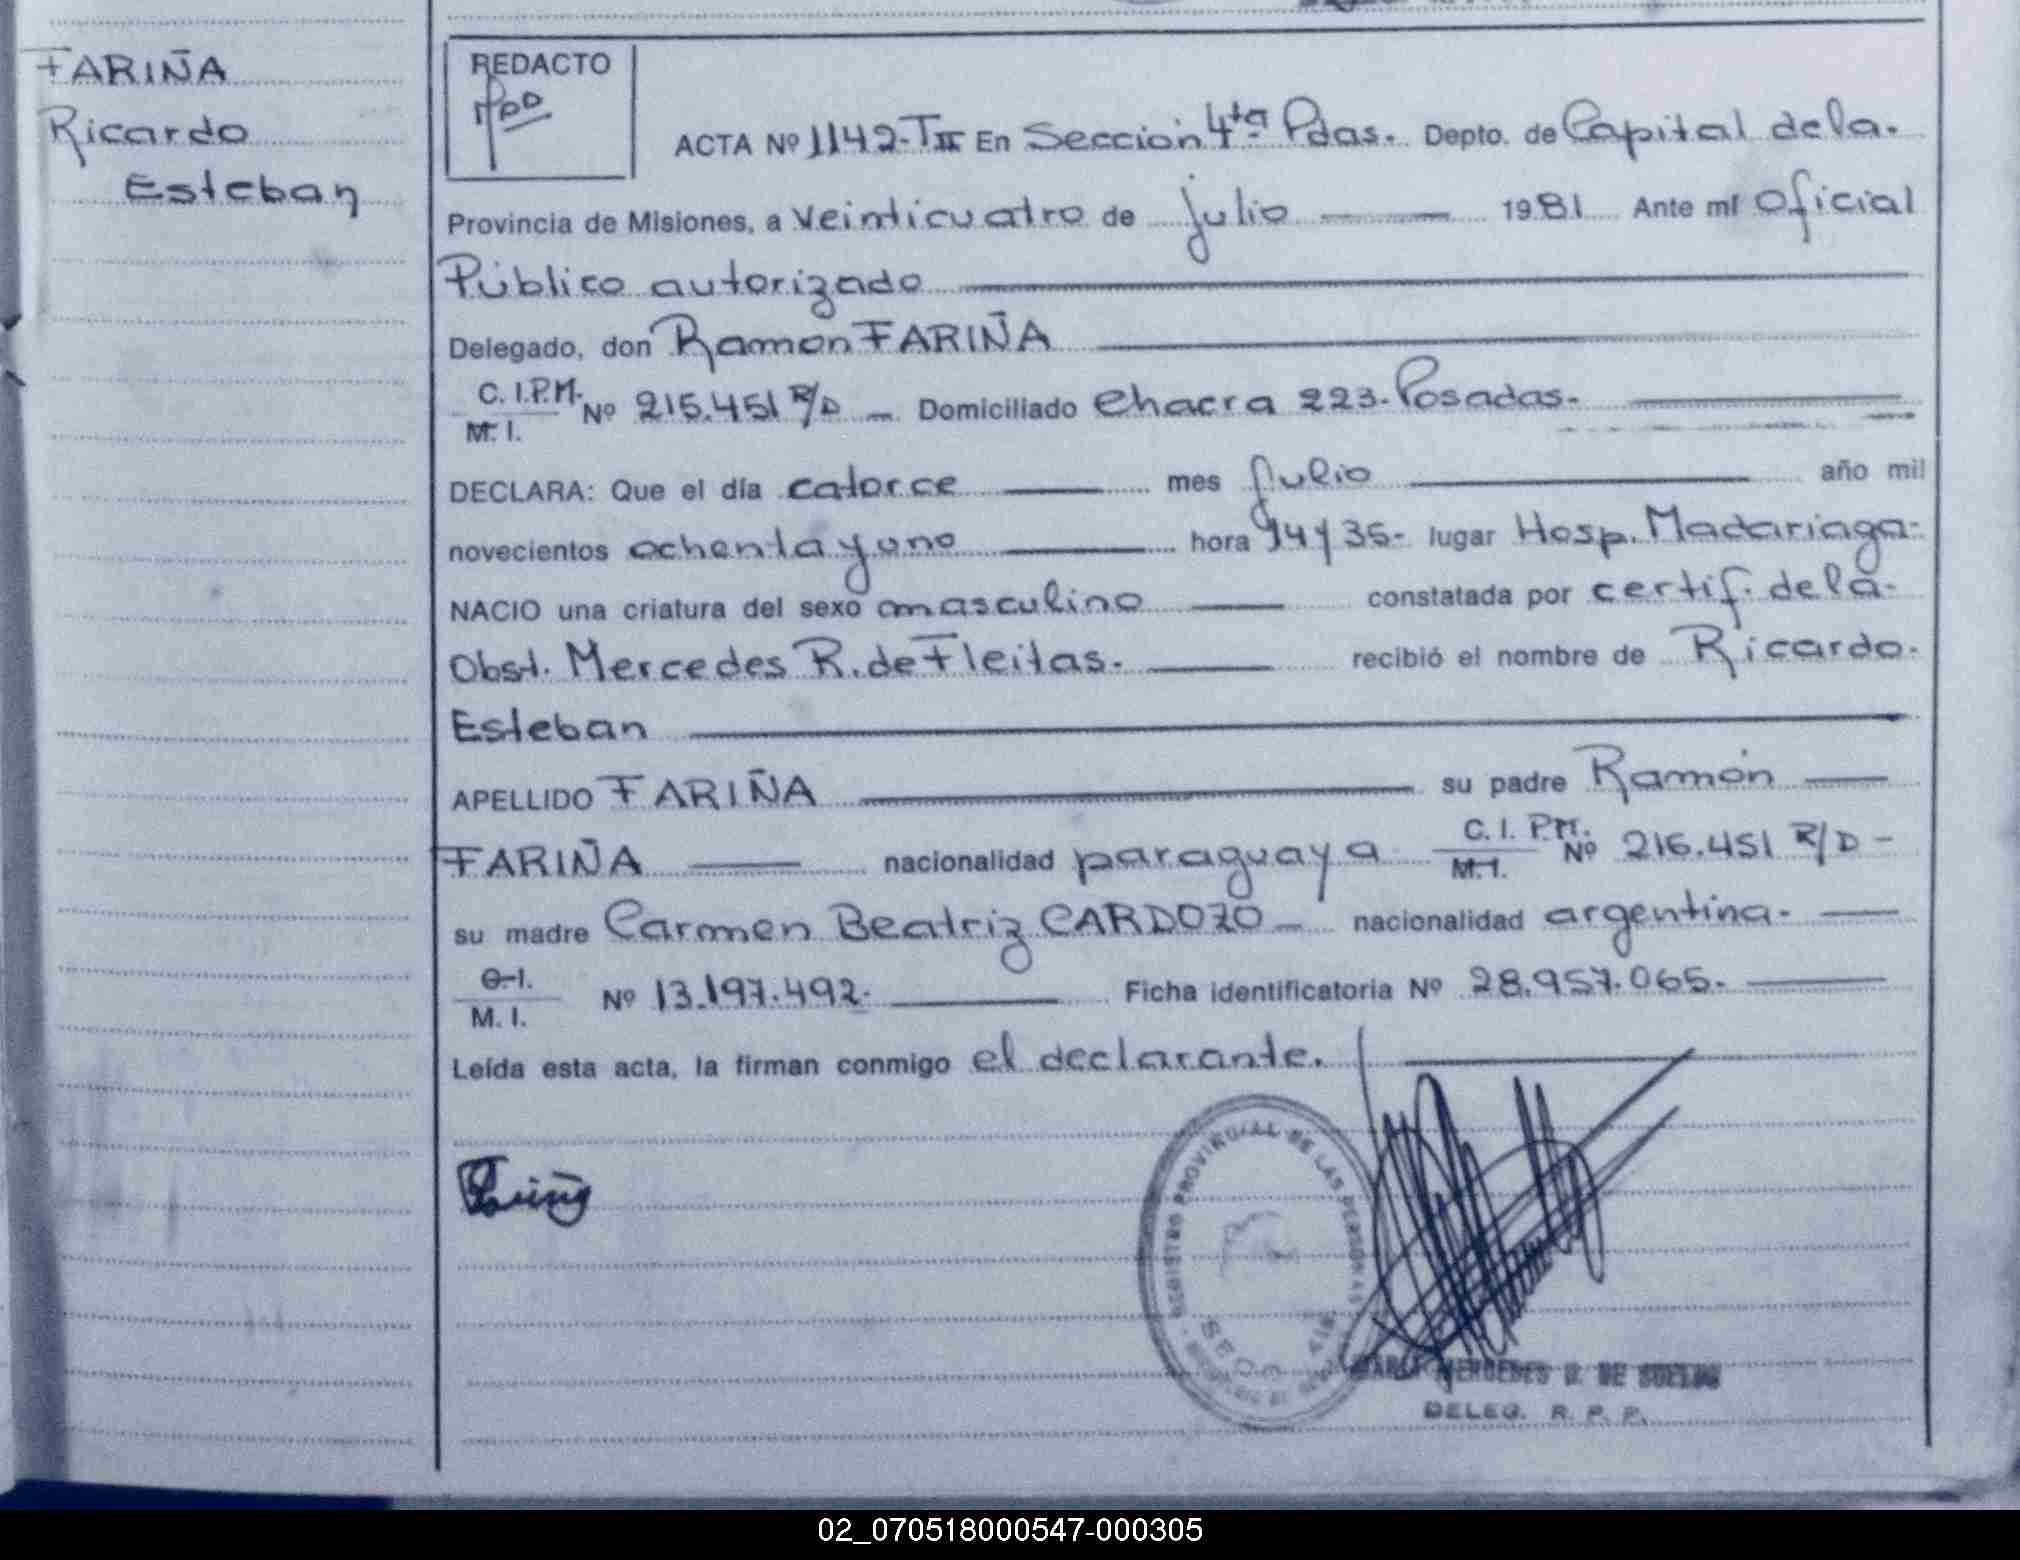 FARIÑA
Ricardo
Esteban
REDACTO
ACTA Nº 1142-TII En Sección 4ta Pdas. Depto. de Capital de la.
Provincia de Misiones, a veinticuatro de julio 1981 Ante mí Oficial
Público autorizado
Delegado, don Ramon FARIÑA
C. I.P.M. Nº 215.451 R/D Domiciliado Chacra 223. Posadas.
M. I.
DECLARA: Que el día catorce mes Julio año mil
novecientos ochenta y uno hora 14 y 35- lugar Hosp. Madariaga-
NACIO una criatura del sexo masculino constatada por certif. de la-
Obst. Mercedes R. de Fleitas. recibió el nombre de Ricardo-
Esteban
APELLIDO FARIÑA su padre Ramón
FARIÑA nacionalidad paraguaya C. I. P.M. Nº 216.451 R/D -
M. I.
su madre Carmen Beatriz CARDOZO - nacionalidad argentina-
C. I.
M. I. Nº 13.197.492- Ficha identificatoria Nº 28.957.065-
Leída esta acta, la firman conmigo el declarante.
REGISTRO PROVINCIAL DE LAS PERSONAS
SECC. 4ta
MARIA MERCEDES DE
DELEG. R. P. P.
02_070518000547-000305